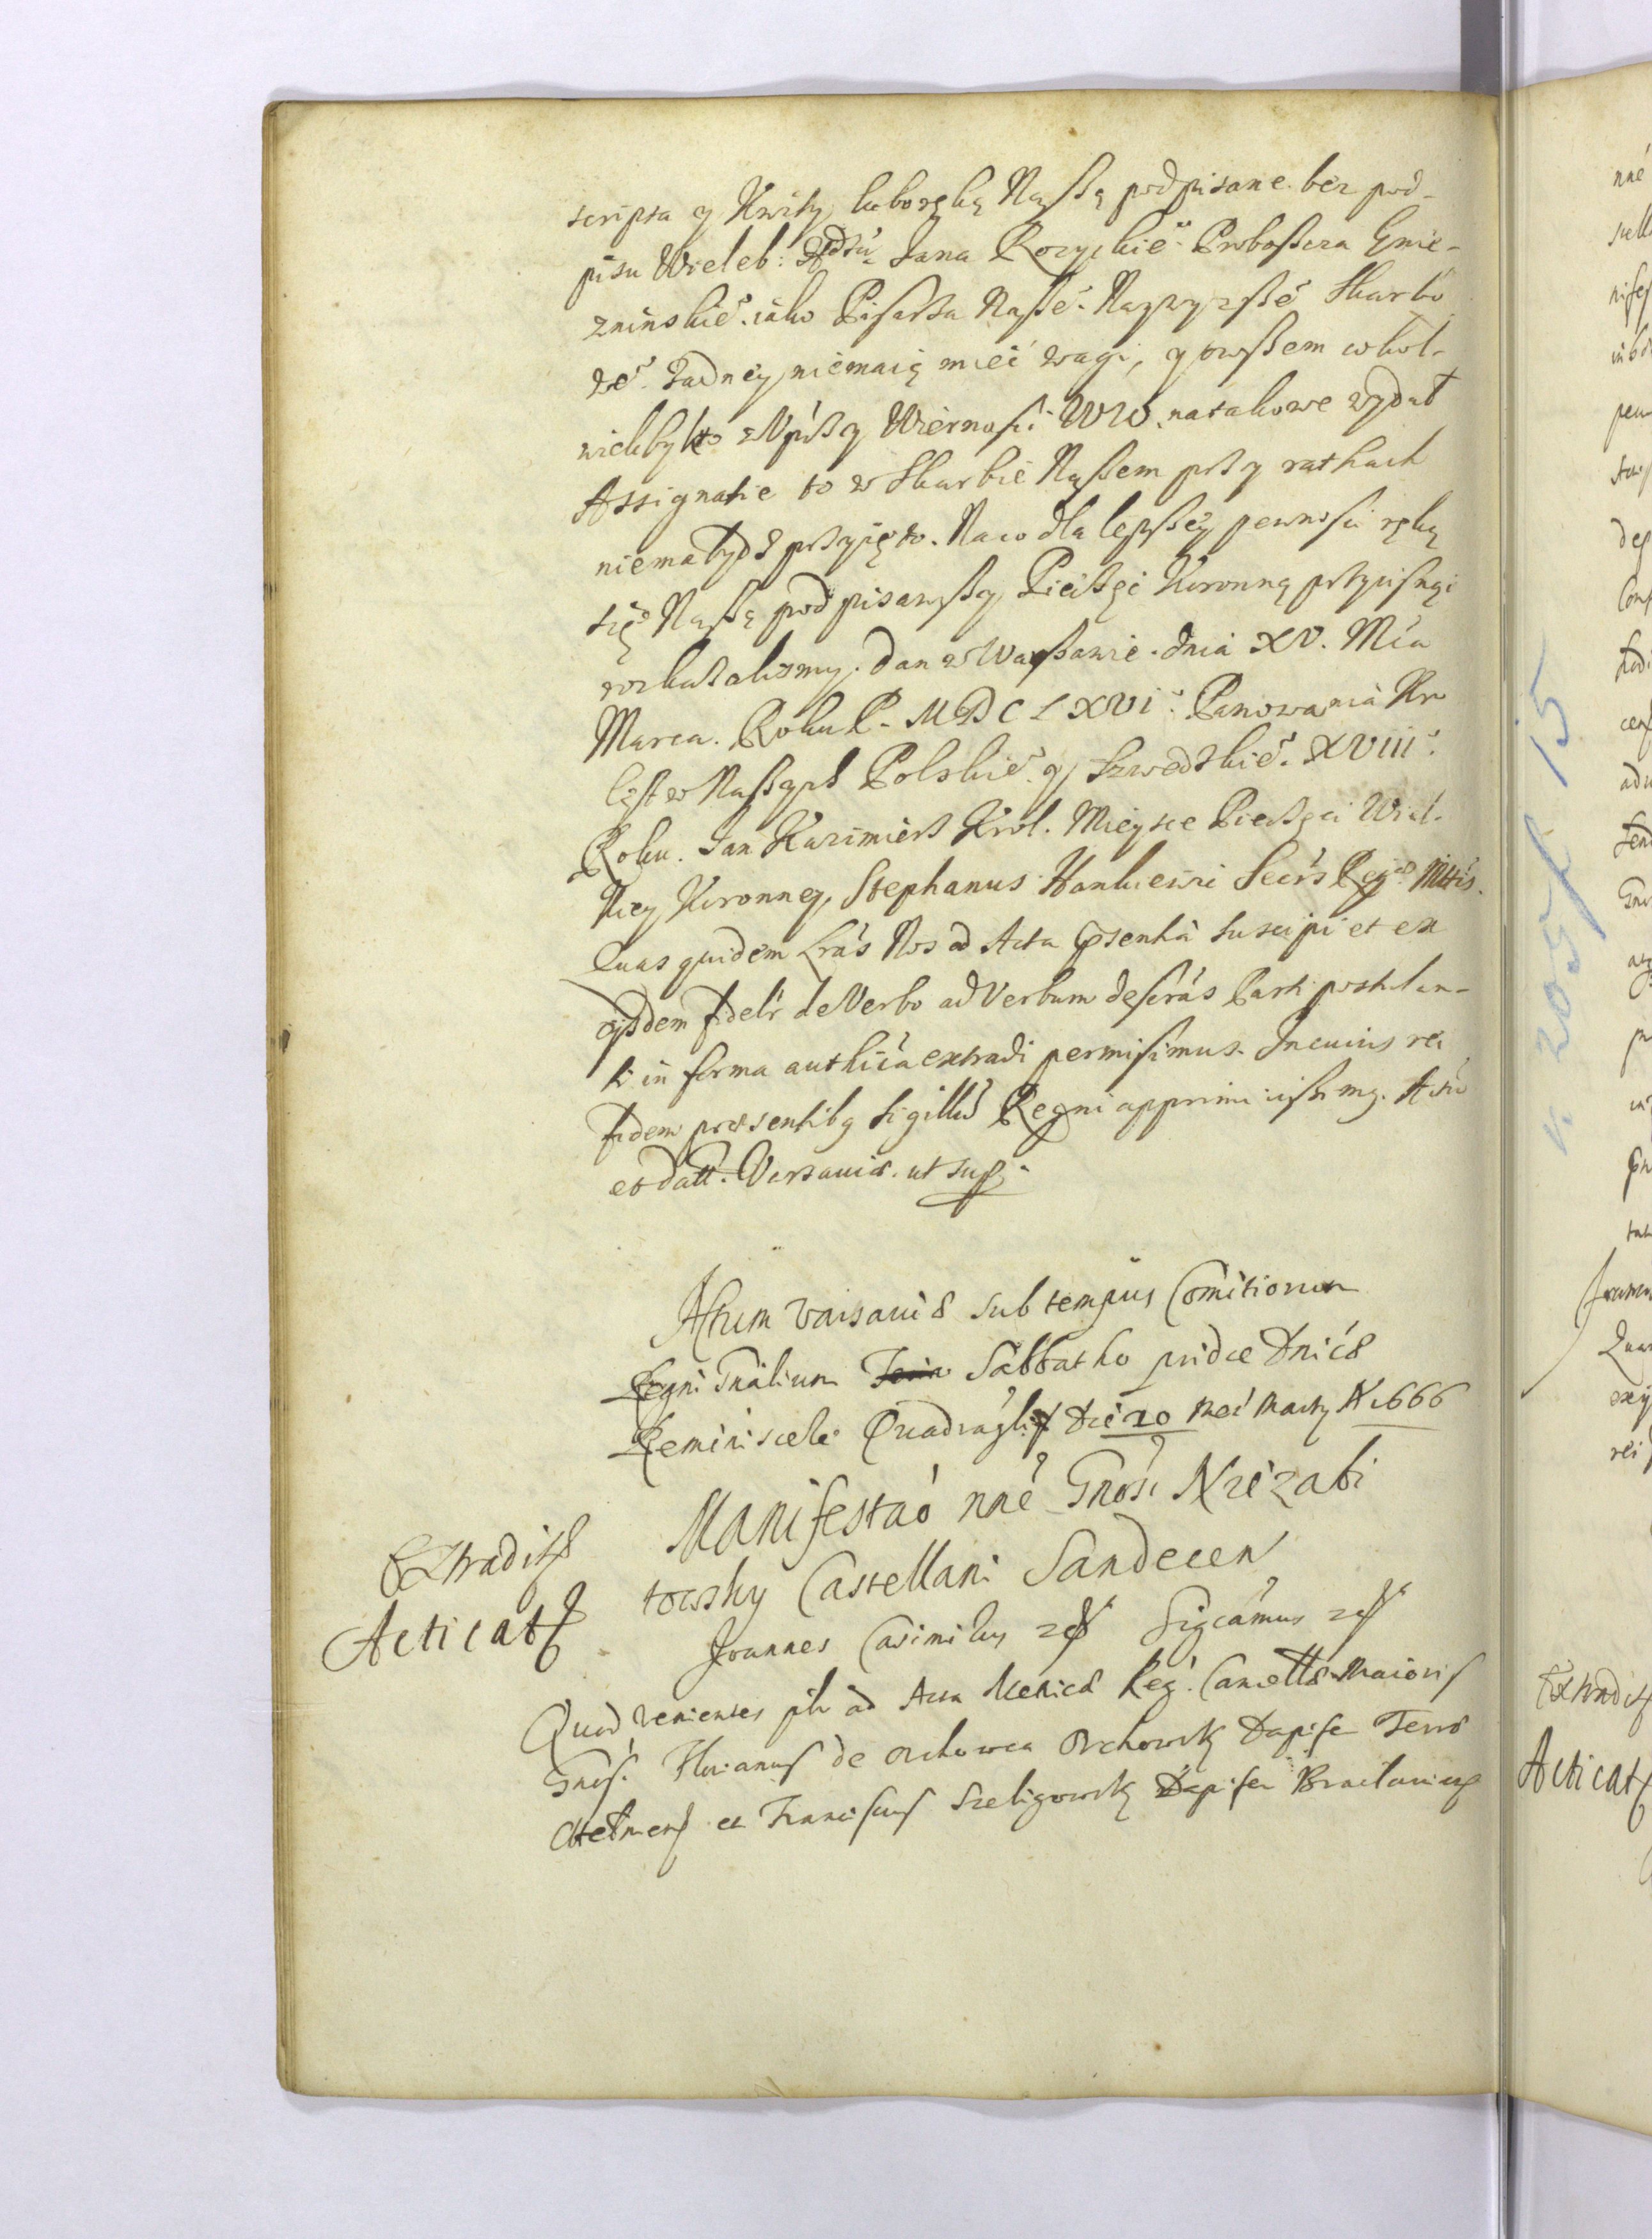 scripta y Kwity lubo ręką Naszą podpisane bez pod-
pisu Wieleb: Xdzu Jana Rozyckie° Proboszcza Gnie-
zninskie° iako Pisarza Nasze° Naywyzsze° Skarbo
we° zadney niemaią mieć wagi, y owszem cokol-
wiekby kto z Uprz y Wiernosci WW. natakowe wydał
Assignatie to w Skarbie Naszem przy rathach
niema bydź przyięto. Naco dla lepszey pewnosci ręką
się Naszą podpisawszy Pieczęć Koronną przycisnąć
rozkazalismy. Dan w Warszawie dnia XV. Mća
Marca. Roku P. MDCLXVI° Panowania Kro
lestw Naszych Polskie° y Szwedzkie° XVIII°
Roku. Jan Kazimierz Krol. Mieysce Pieczęci Wiel-
kiey Koronney, Stephanus Hankiewi Secrs Regiae Mttis.
Quas quidem Lras Nos ad Acta psentia suscipi et ex
ijsdem fidelr de Verbo ad Verbum descras Parti postulan-
ti in forma authica extradi permisimus. In cuius rei
fidem praesentibg sigillu Regni apprimi iussimg. Actu
et datt. Varsauiae. ut sup.
Actum Varsauiae sub tempus Comitiorum
Regni Gnalium Sabbatho pridie Dnicae
Reminiscere Quadraglis Die 20 Mci Marty A 1666
Manifestao nne Gnosi Krzczabi
towsky Castellani Sandecen
Extradit
Acticat
Joannes Casimirus etc Sigcamus etc
Quod venientes plr ad Acta Metricae Reg. Cancellae Maioris
Gnos. Florianus de Orchowca Orchowsky Dapifer Terrae
Chelmens et Franciscus Szeligowsky Dapifer Braclauiens